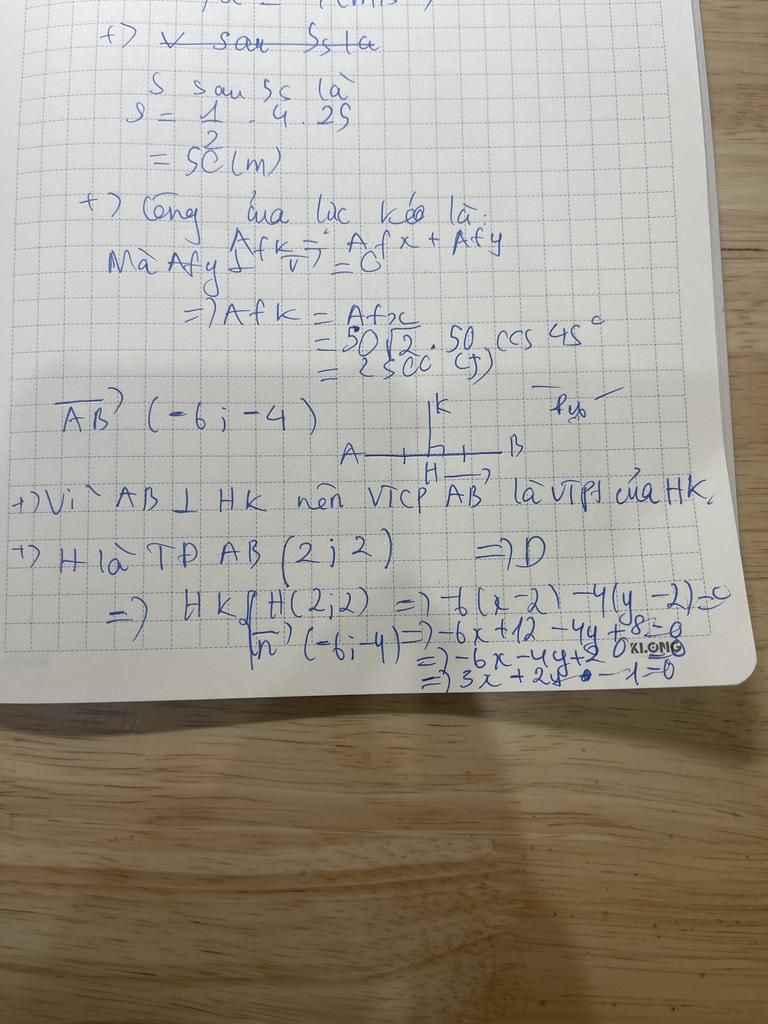 +) v sau 5s là
S sau 5s là
S = 1/2 . 4 . 25
= 50 (m)
+) Công của lực kéo là:
Afk = Afx + Afy
Mà Afy ⊥ v⃗ = 0
=> Afk = Afx
= 50√2 . 50 . cos 45°
= 2500 (J)
AB⃗ (-6; -4)
K
A H B
+) Vì AB ⊥ HK nên VTCP AB⃗ là VTPT của HK.
+) H là TĐ AB (2; 2) => D
=> HK { H(2;2) => -6(x-2) -4(y-2)=0
n⃗ (-6;-4) => -6x+12 -4y+8=0
=> -6x-4y+20=0
KLONG
=> 3x + 2y - 1=0